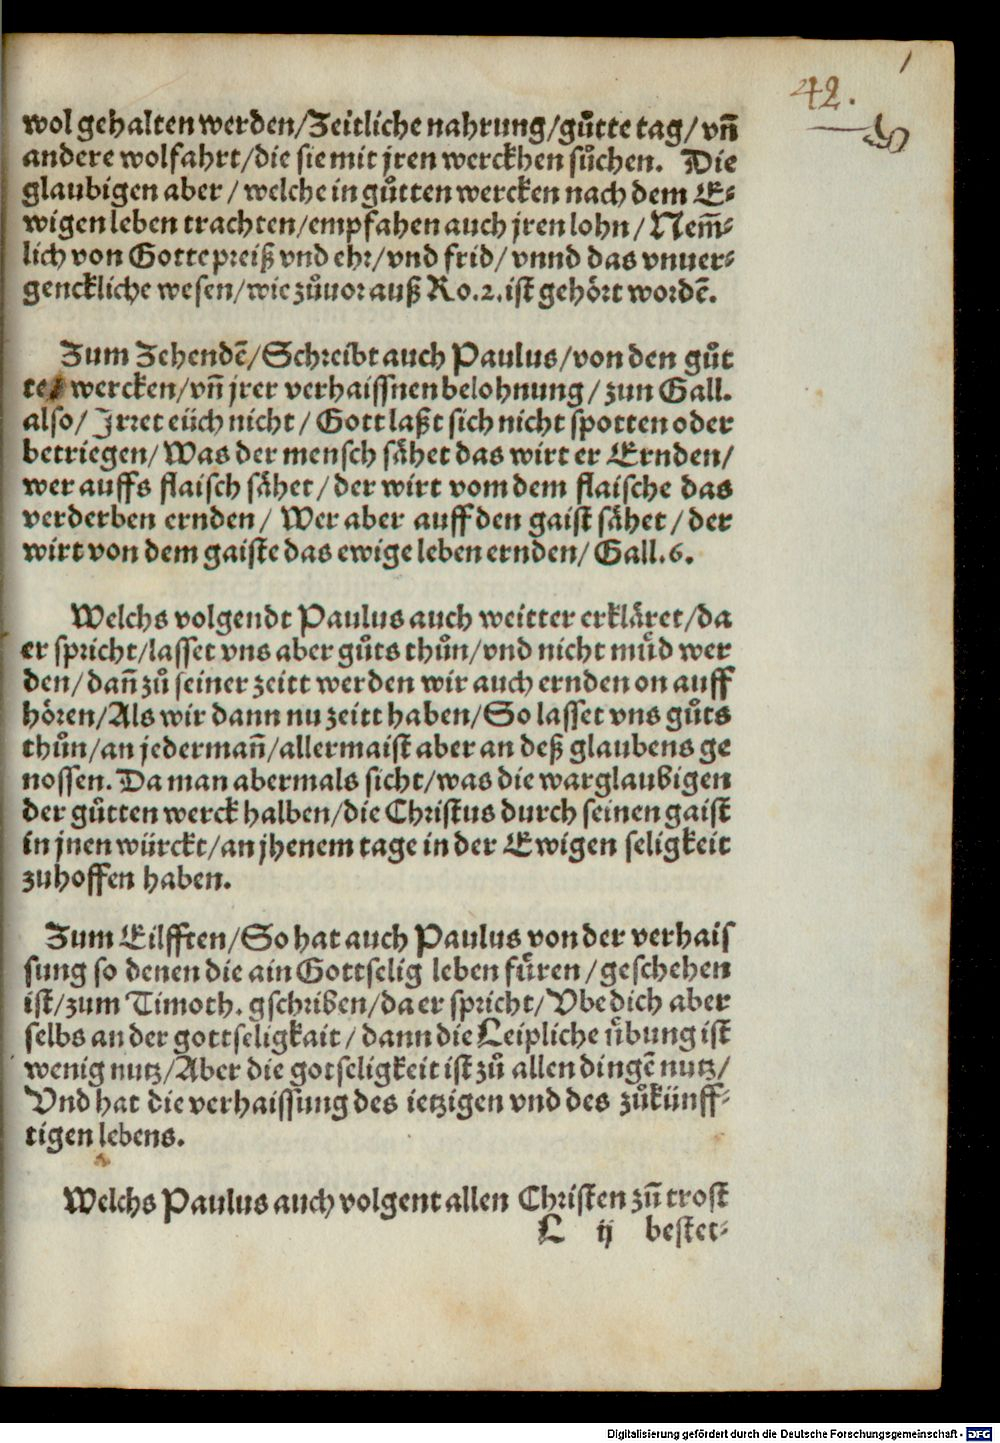 42.
wol gehalten werden/Zeitliche nahrung/gůtte tag/ vñ
andere wolfahrt/die sie mit jren werckhen sůchen. Die
glaubigen aber / welche in gůtten wercken nach dem E-
wigen leben trachten/empfahen auch jren lohn / Nem̄-
lich von Gotte preiß vnd ehr/vnd frid/ vnnd das vnuer-
genckliche wesen/wie zůuor auß Ro.2.ist gehört wordē.
Zum Zehendē/Schreibt auch Paulus/von den gůt
te wercken/vñ jrer verhaissnen belohnung / zun Gall.
also/ Irret eüch nicht / Gott laßt sich nicht spotten oder
betriegen/ Was der mensch sähet das wirt er Ernden/
wer auffs flaisch sähet / der wirt vom dem flaische das
verderben ernden / Wer aber auff den gaist sähet / der
wirt von dem gaiste das ewige leben ernden/ Gall.6.
Welchs volgendt Paulus auch weitter erkläret/da
er spricht/lasset vns aber gůts thůn/vnd nicht müd wer
den/dañ zů seiner zeitt werden wir auch ernden on auff
hören/Als wir dann nu zeitt haben/So lasset vns gůts
thůn/an jedermañ/allermaist aber an deß glaubens ge
nossen. Da man abermals sicht/was die warglaubigen
der gůtten werck halben/die Christus durch seinen gaist
in jnen würckt/an jhenem tage in der Ewigen seligkeit
zuhoffen haben.
Zum Eilfften/So hat auch Paulus von der verhais
sung so denen die ain Gottselig leben füren / geschehen
ist/zum Timoth. gschriben/da er spricht/Vbe dich aber
selbs an der gottseligkait / dann die Leipliche übung ist
wenig nutz/Aber die gotseligkeit ist zů allen dingē nutz/
Vnd hat die verhaissung des ietzigen vnd des zůkünff-
tigen lebens.
Welchs Paulus auch volgent allen Christen zů trost
L ij bestet-
Digitalisierung gefördert durch die Deutsche Forschungsgemeinschaft - DFG